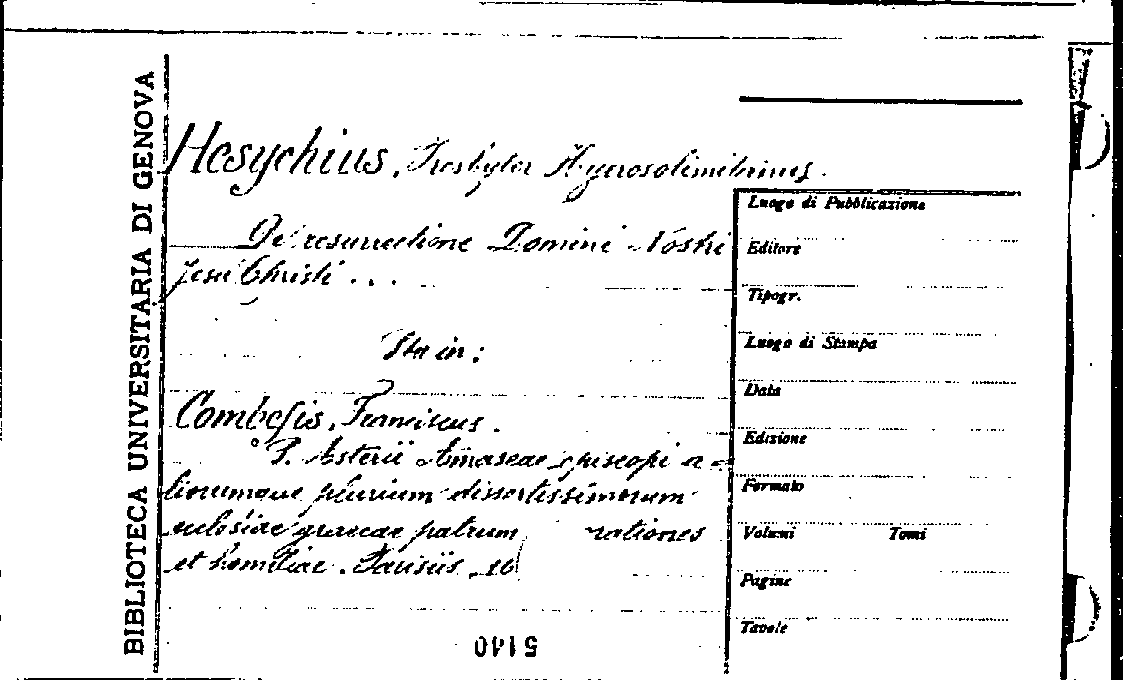 BIBLIOTECA UNIVERSITARIA DI GENOVA
Hesychius, Presbyter Hyerosolimitanus.
De resurrectione Domini Nostri
Jesu Christi ...
Sta in:
Combefis, Franciscus.
S. Asterii Amaseae episcopi a-
liorumque plurium dissertissimorum
eclesiae graecae patrum rationes
et homiliae. Parisiis,
5140
Luogo di Pubblicazione
Editore
Tipogr.
Luogo di Stampa
Data
Edizione
Formato
Volumi Tomi
Pagine
Tavole